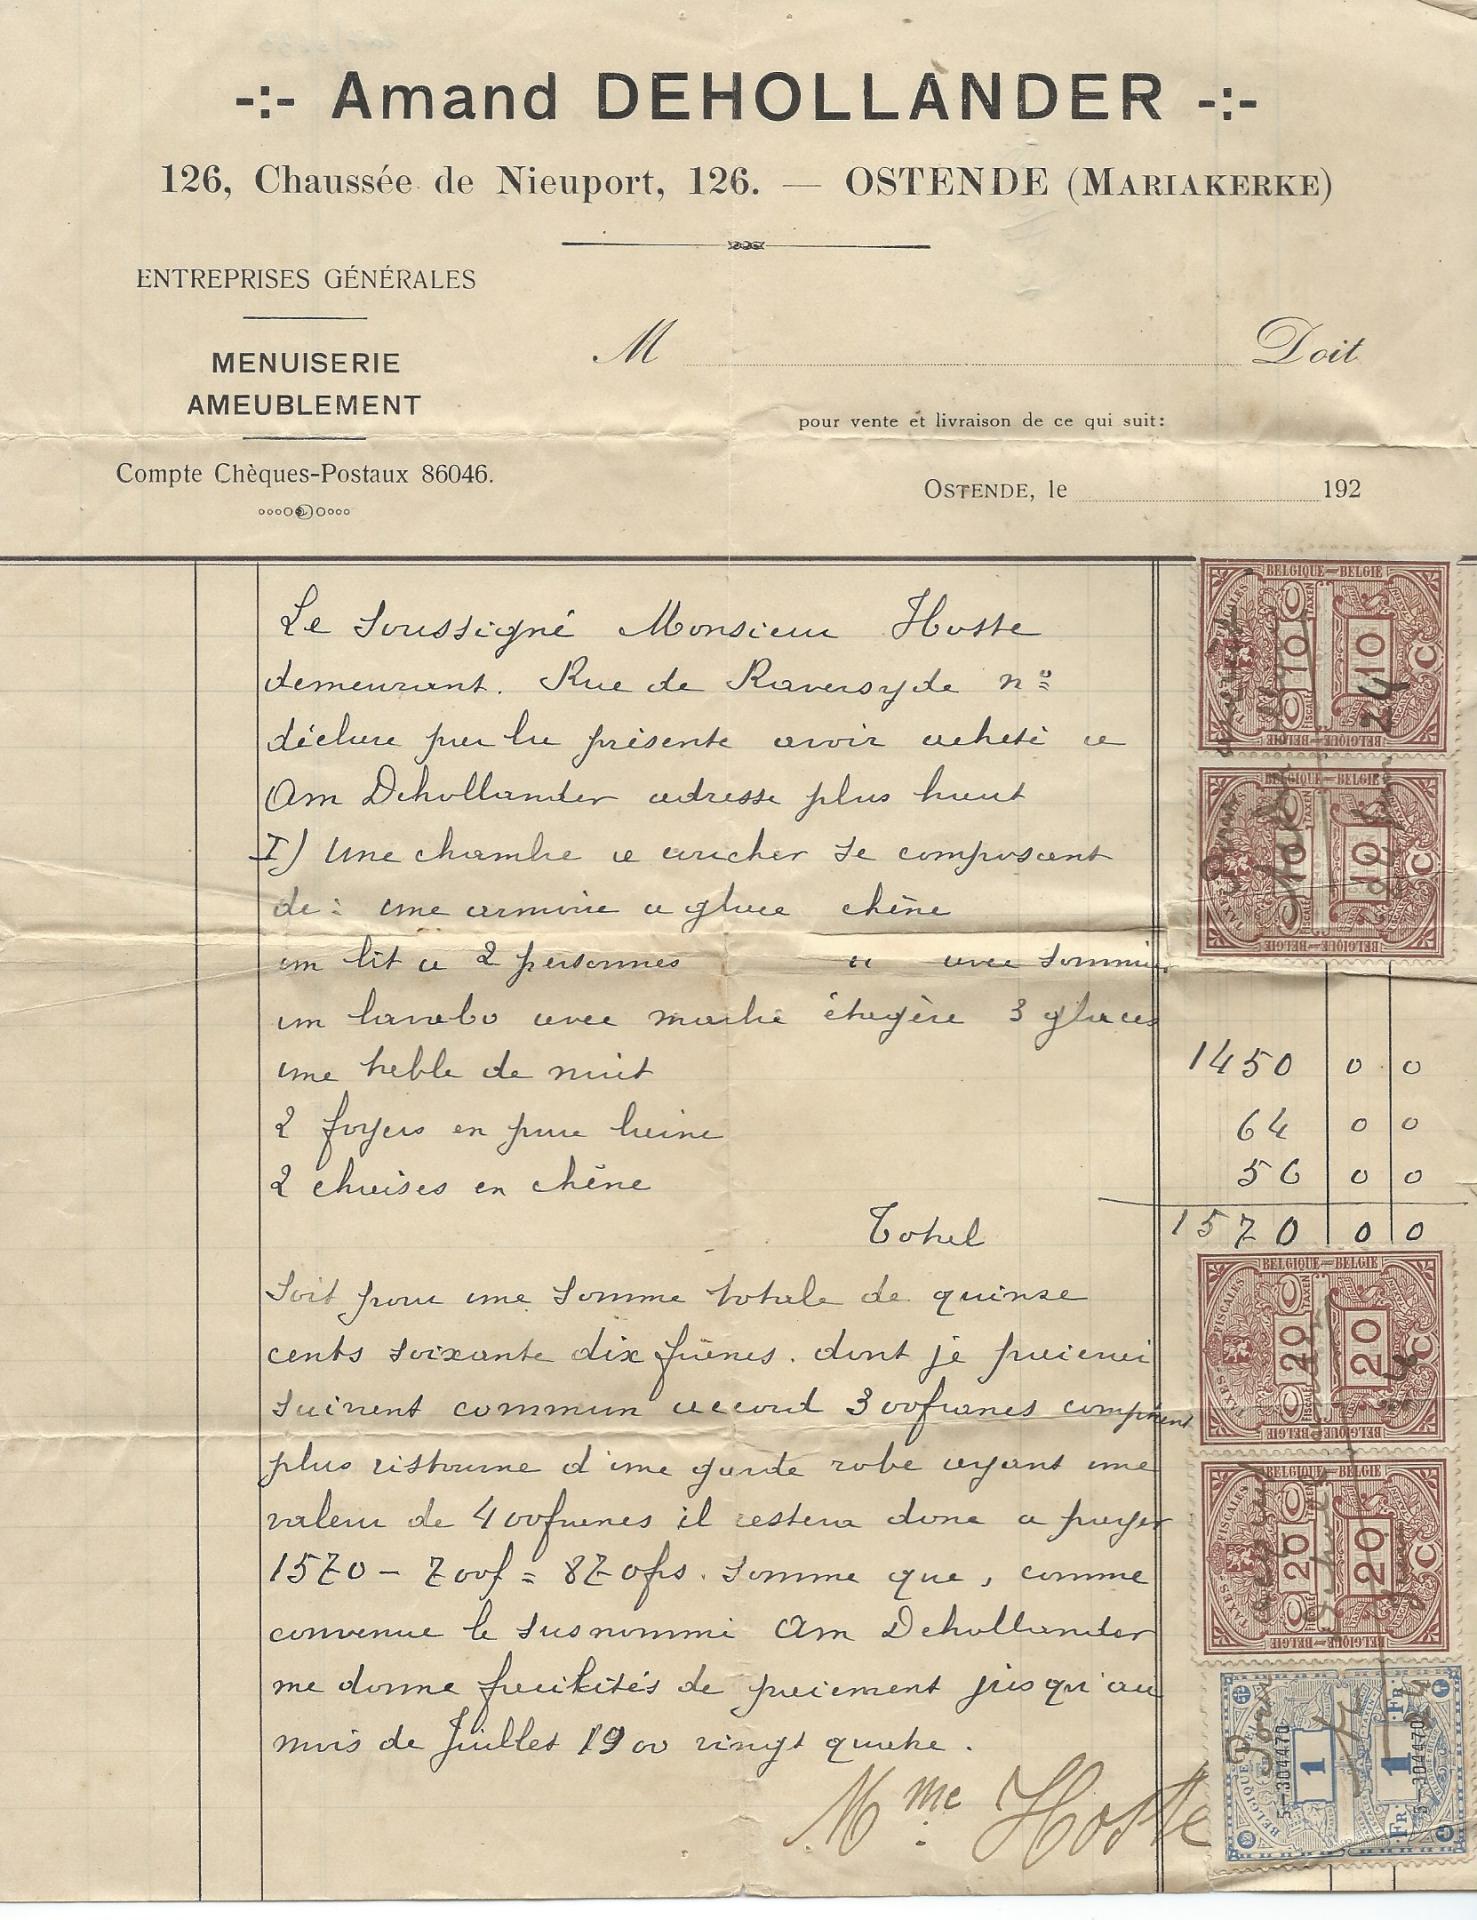 -:- Amand DEHOLLANDER -:-
126, Chaussée de Nieuport, 126. — OSTENDE (MARIAKERKE)
ENTREPRISES GÉNÉRALES
MENUISERIE
AMEUBLEMENT
Compte Chèques-Postaux 86046.
M Doit
pour vente et livraison de ce qui suit:
OSTENDE, le 192
Le Soussigné Monsieur Hoste
demeurant. Rue de Raversyde nº
déclare par la présente avoir acheté a
Am Dehollander adresse plus haut
I) Une chambre a coucher se composant
de: une armoire a glace chêne
un lit a 2 personnes " avec sommier
un lavabo avec marbre étagère 3 glaces
une table de nuit 1450 0 0
2 foyers en pure laine 64 0 0
2 chaises en chêne 56 0 0
Total 1570 0 0
Soit pour une somme totale de quinze
cents soixante dix francs. dont je paierai
suivent commun accord 300francs comptant
plus ristourne d'une garde robe ayant une
valeur de 400francs il restera donc a payer
1570 - 700f = 870frs. Somme que, comme
convenue le susnommé Am Dehollander
me donne facilités de paiement jusqu'au
mois de Juillet 1900 vingt quatre.
Mme Hoste
BELGIQUE-BELGIE
TAXES FISCALES
10 10 C
24
BELGIQUE-BELGIE
BELGIQUE-BELGIE
10 10 C
BELGIE-BELGIQUE
BELGIQUE-BELGIE
TAXES-FISCALES
20 20 C
BELGIE-BELGIQUE
BELGIQUE-BELGIE
TAXES-FISCALES
20 20 C
BELGIE-BELGIQUE
1 FR 1 FR
5-304470
5-304470